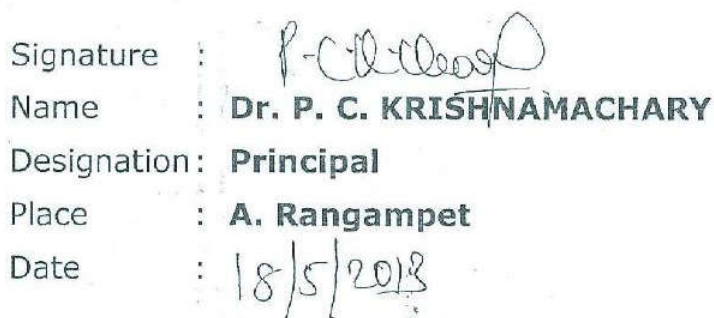 Signature :
Name : Dr. P. C. KRISHNAMACHARY
Designation : Principal
Place : A. Rangampet
Date : 18/5/2013